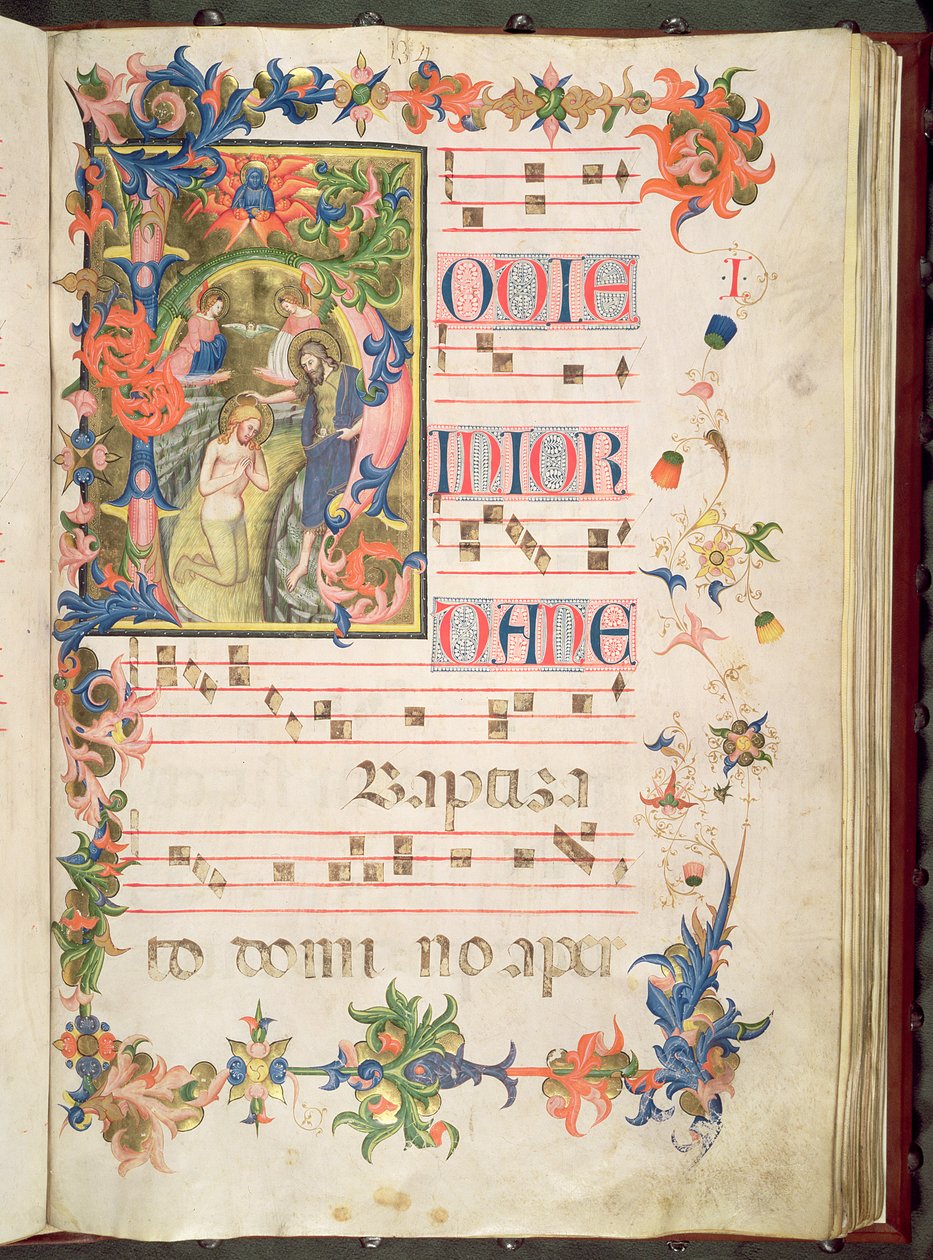 HODIE
·I·
INIOR
DANE
Baptiza
to domi no aper